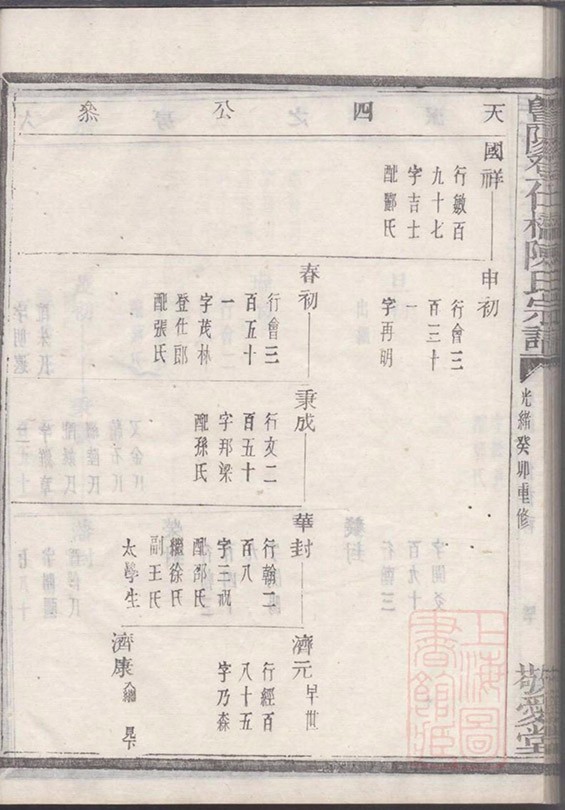 暨陽登仕橋陳氏宗譜
光緒癸卯重修
敬愛堂
天四公叅
國祥
行敏百
九十七
字吉士
配酈氏
申初
行會三
百三十
一
字再明
春初
行會三
百五十
一
字茂林
登仕郎
配張氏
秉成
行文二
百五十
字邦梁
配孫氏
華封
行翰二
百八
字三祝
配邵氏
繼徐氏
副王氏
太學生
濟元早世
行經百
八十五
字乃森
濟康
上海圖
書館藏